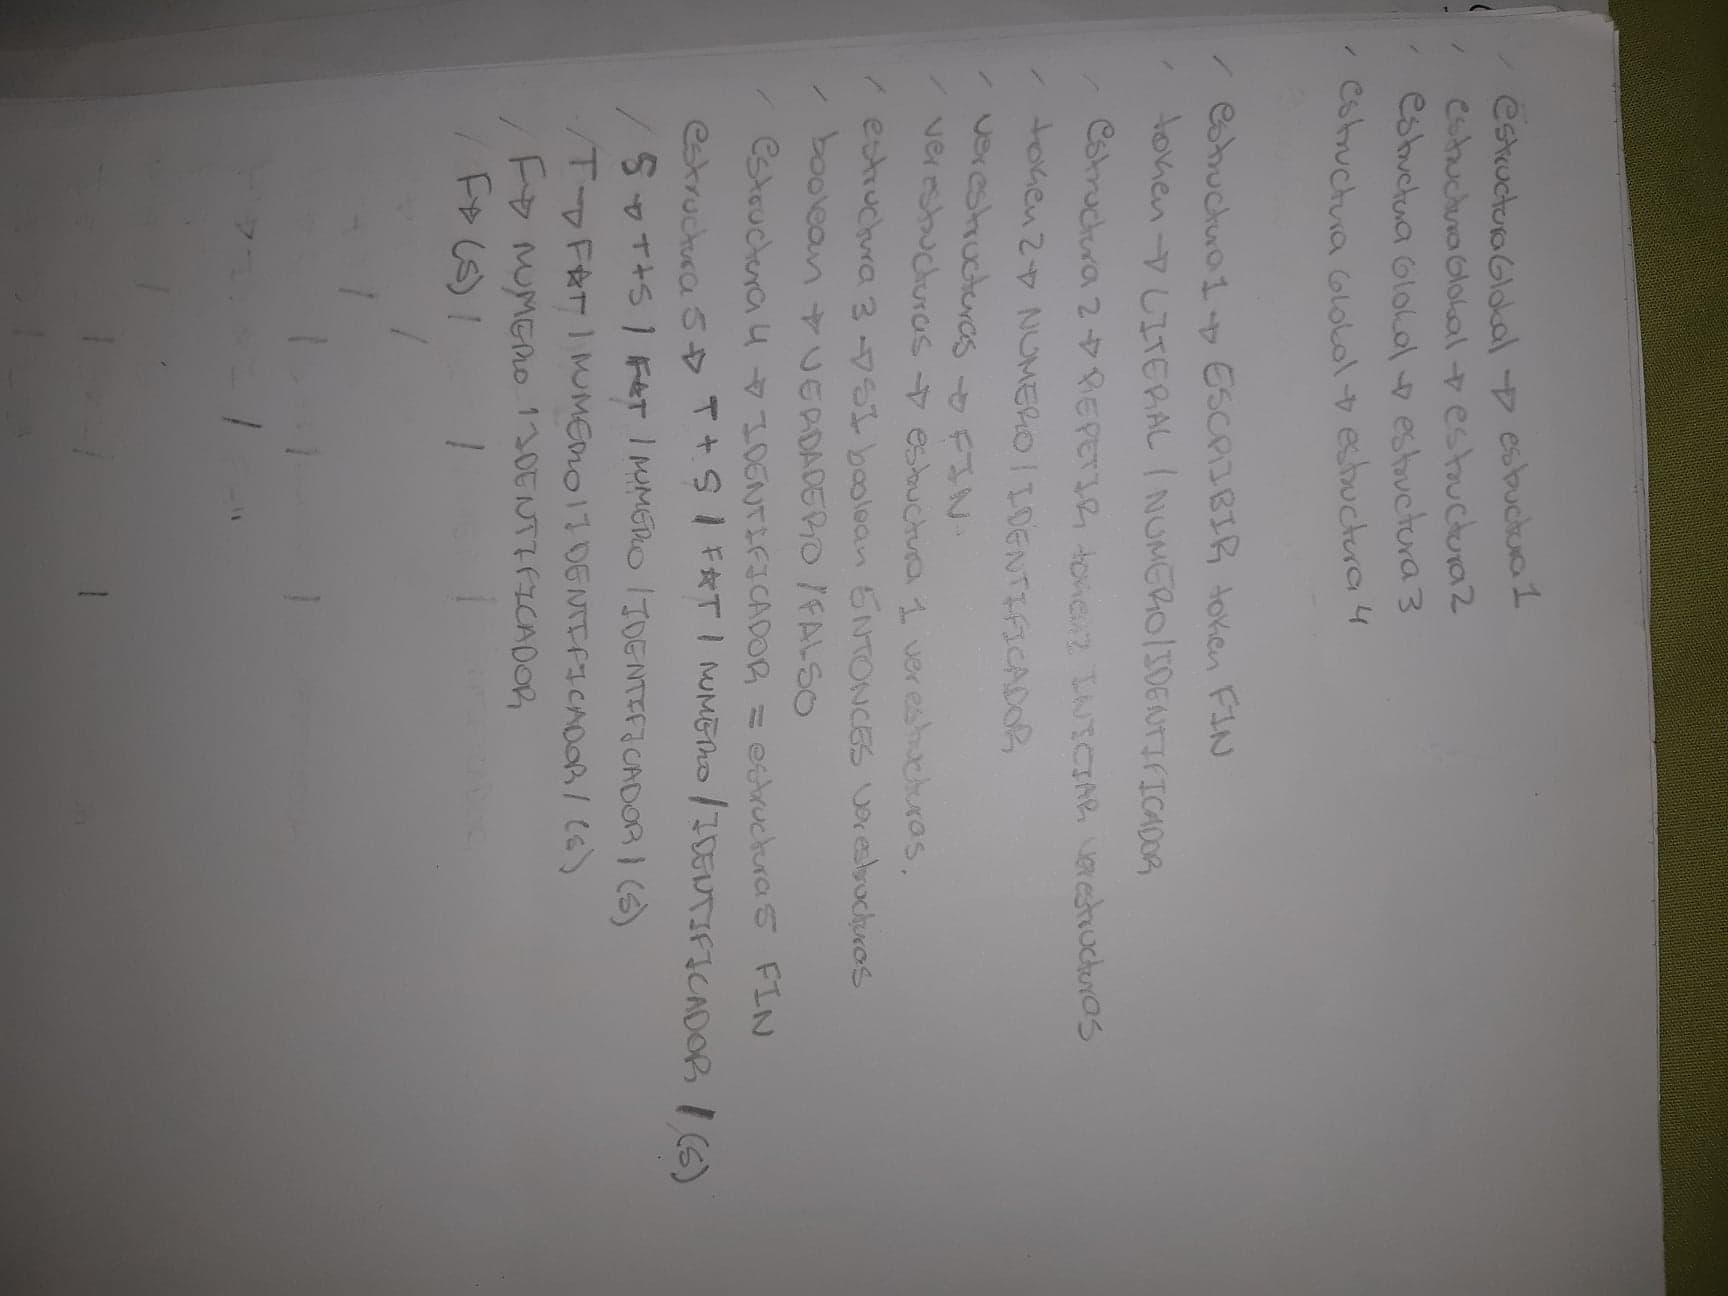 estructuraGlobal → estructura1
estructuraGlobal → estructura2
estructuraGlobal → estructura3
estructuraGlobal → estructura4
estructura1 → ESCRIBIR token FIN
token → LITERAL / NUMERO / IDENTIFICADOR
estructura2 → REPETIR token2 INICIAR verestructuras
token2 → NUMERO / IDENTIFICADOR
verestructuras → FIN
verestructuras → estructura1 verestructuras.
estructura3 → SI boolean ENTONCES verestructuras
boolean → VERDADERO / FALSO
Estructura4 → IDENTIFICADOR = estructura5 FIN
estructura5 → T+S / F*T / NUMERO / IDENTIFICADOR / (S)
S → T+S / F*T / NUMERO / IDENTIFICADOR / (S)
T → F*T / NUMERO / IDENTIFICADOR / (S)
F → NUMERO / IDENTIFICADOR
F → (S) /